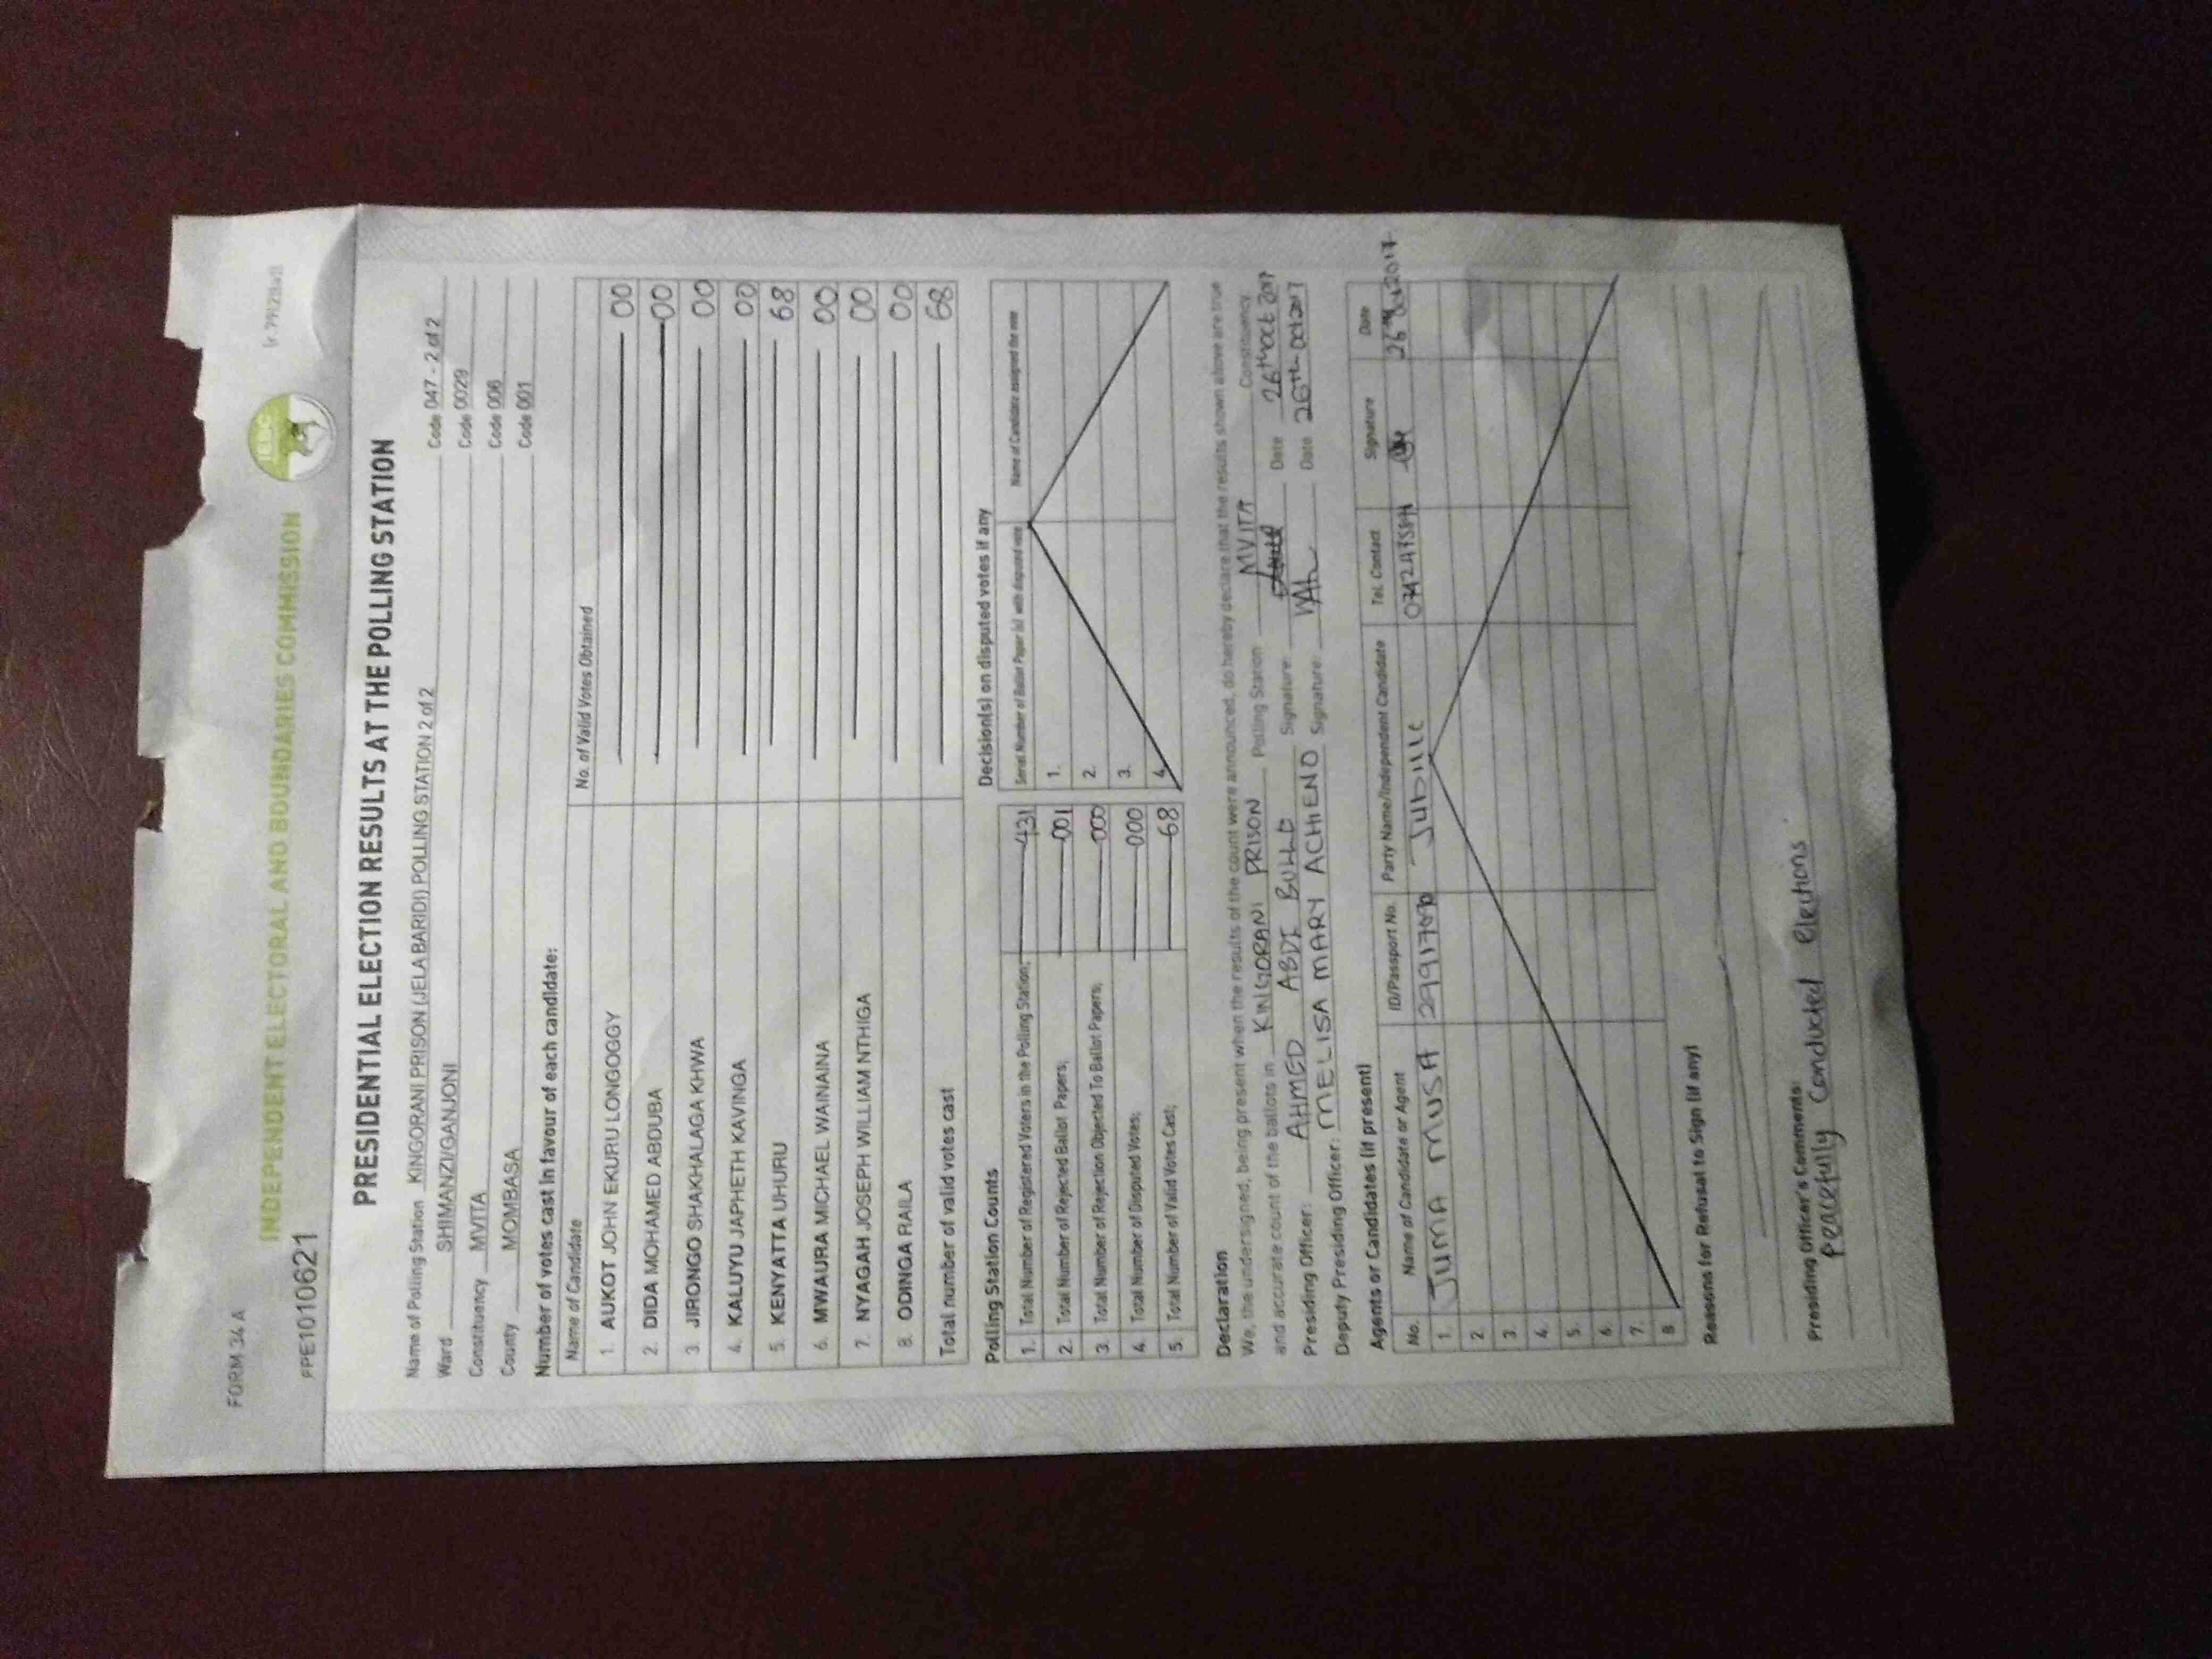 FORM 34 A
INDEPENDENT ELECTORAL AND BOUNDARIES COMMISSION
IEBC
PPE1010621
PRESIDENTIAL ELECTION RESULTS AT THE POLLING STATION
Name of Polling Station KINGORANI PRISON (JELA BARIDI) POLLING STATION 2 of 2 Code 047 - 2 of 2
Ward SHIMANZI/GANJONI Code 0029
Constituency MVITA Code 006
County MOMBASA Code 001
Number of votes cast in favour of each candidate:
Name of Candidate No. of Valid Votes Obtained
1. AUKOT JOHN EKURU LONGOGGY 00
2. DIDA MOHAMED ABDUBA 00
3. JIRONGO SHAKHALAGA KHWA 00
4. KALUYU JAPHETH KAVINGA 00
5. KENYATTA UHURU 68
6. MWAURA MICHAEL WAINAINA 00
7. NYAGAH JOSEPH WILLIAM NTHIGA 00
8. ODINGA RAILA 00
Total number of valid votes cast 68
Polling Station Counts
1. Total Number of Registered Voters in the Polling Station; 431
2. Total Number of Rejected Ballot Papers; 001
3. Total Number of Rejection Objected To Ballot Papers; 000
4. Total Number of Disputed Votes; 000
5. Total Number of Valid Votes Cast; 68
Decision(s) on disputed votes if any
Serial Number of Ballot Paper (s) with disputed vote Name of Candidate assigned the vote
1.
2.
3.
4.
Declaration
We, the undersigned, being present when the results of the count were announced, do hereby declare that the results shown above are true
and accurate count of the ballots in KINGORANI PRISON Polling Station MVITA Constituency
Presiding Officer: AHMED ABDI BULLO Signature: Date 26th Oct 2017
Deputy Presiding Officer: MELISA MARY ACHIENO Signature: Date 26th Oct 2017
Agents or Candidates (if present)
No. Name of Candidate or Agent ID/Passport No. Party Name/Independent Candidate Tel. Contact Signature Date
1. JUMA MUSA Jubille
2.
3.
4.
5.
6.
7.
8
Reasons for Refusal to Sign (if any)
Presiding Officer's Comments:
Peacefully Conducted Elections